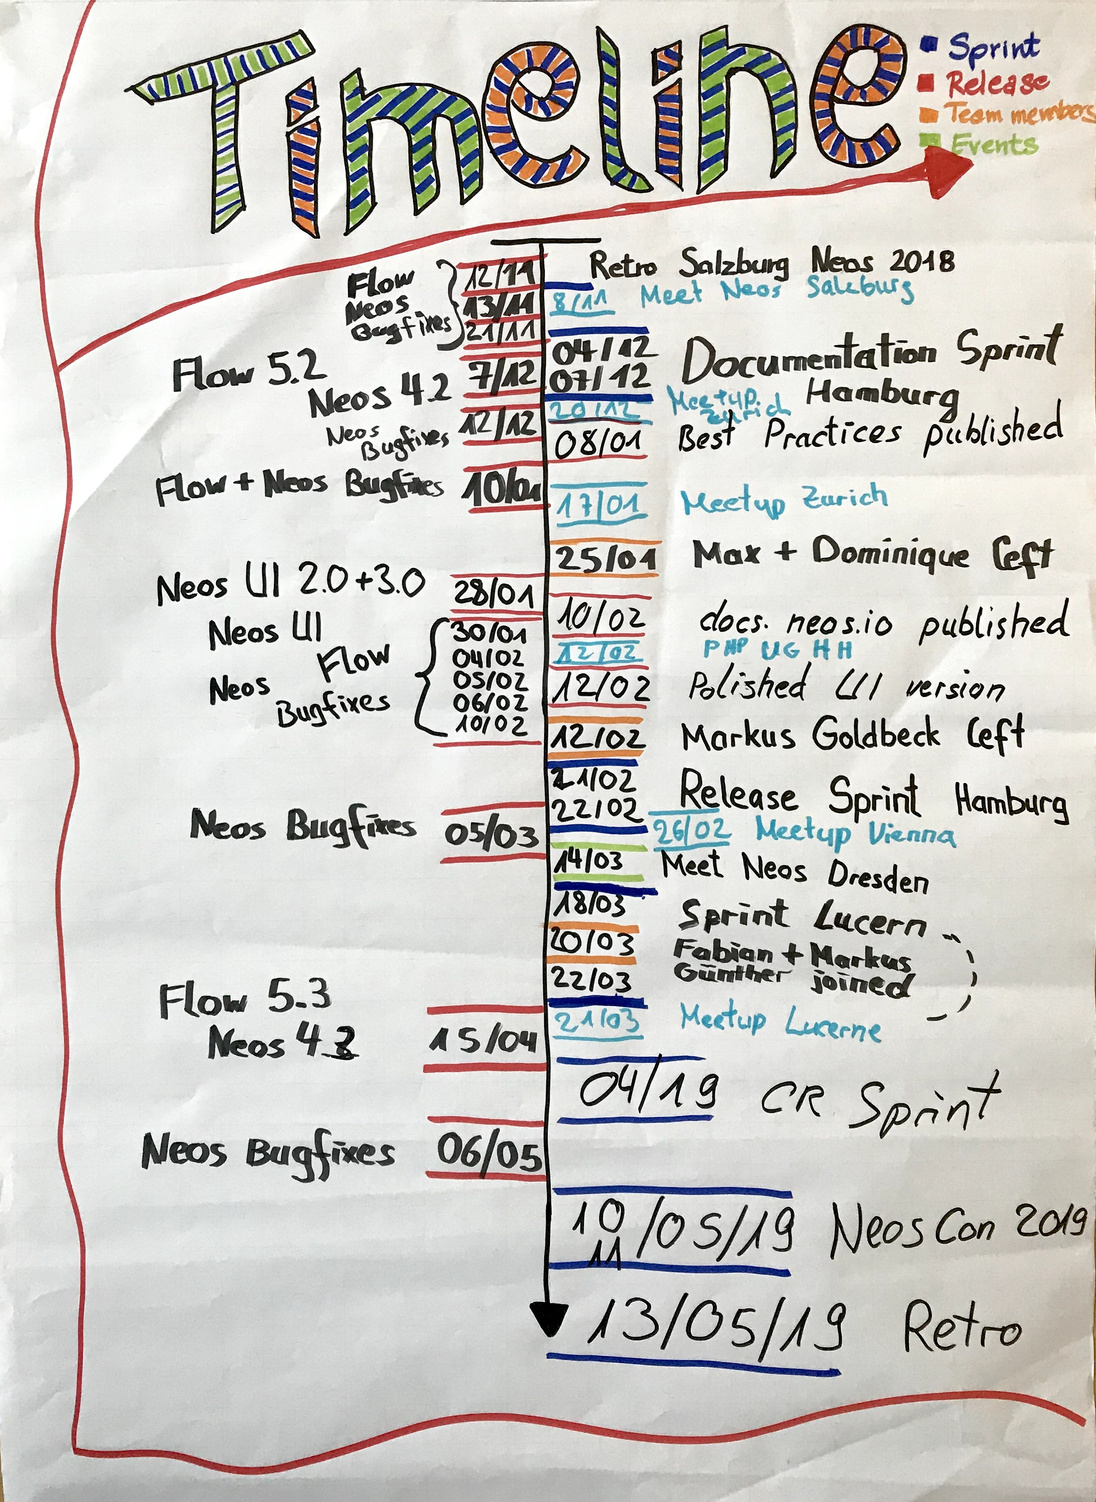 Timeline
Sprint
Release
Team members
Events
Retro Salzburg Neos 2018
Flow
Neos
Bugfixes
12/11
13/11
21/11
8/11 Meet Neos Salzburg
04/12
07/12
Documentation Sprint
Hamburg
Flow 5.2
Neos 4.2
7/12
20/12 Meetup Zurich
Neos
Bugfixes
12/12
08/01 Best Practices published
Flow + Neos Bugfixes 10/01
17/01 Meetup Zurich
25/01 Max + Dominique left
Neos UI 2.0+3.0 28/01
10/02 docs.neos.io published
Neos UI
Flow
Neos
Bugfixes
30/01
04/02
05/02
06/02
10/02
12/02 PHP UG HH
12/02 Polished UI version
12/02 Markus Goldbeck left
21/02
22/02
Release Sprint Hamburg
Neos Bugfixes 05/03
26/02 Meetup Vienna
14/03 Meet Neos Dresden
18/03 Sprint Lucern
20/03 Fabian + Markus
Günther joined
22/03
21/03 Meetup Lucerne
Flow 5.3
Neos 4.3
15/04
04/19 CR Sprint
Neos Bugfixes 06/05
10/05/19 NeosCon 2019
11
13/05/19 Retro